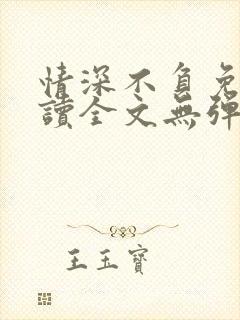 情深不負免
讀全文無彈
王玉寶